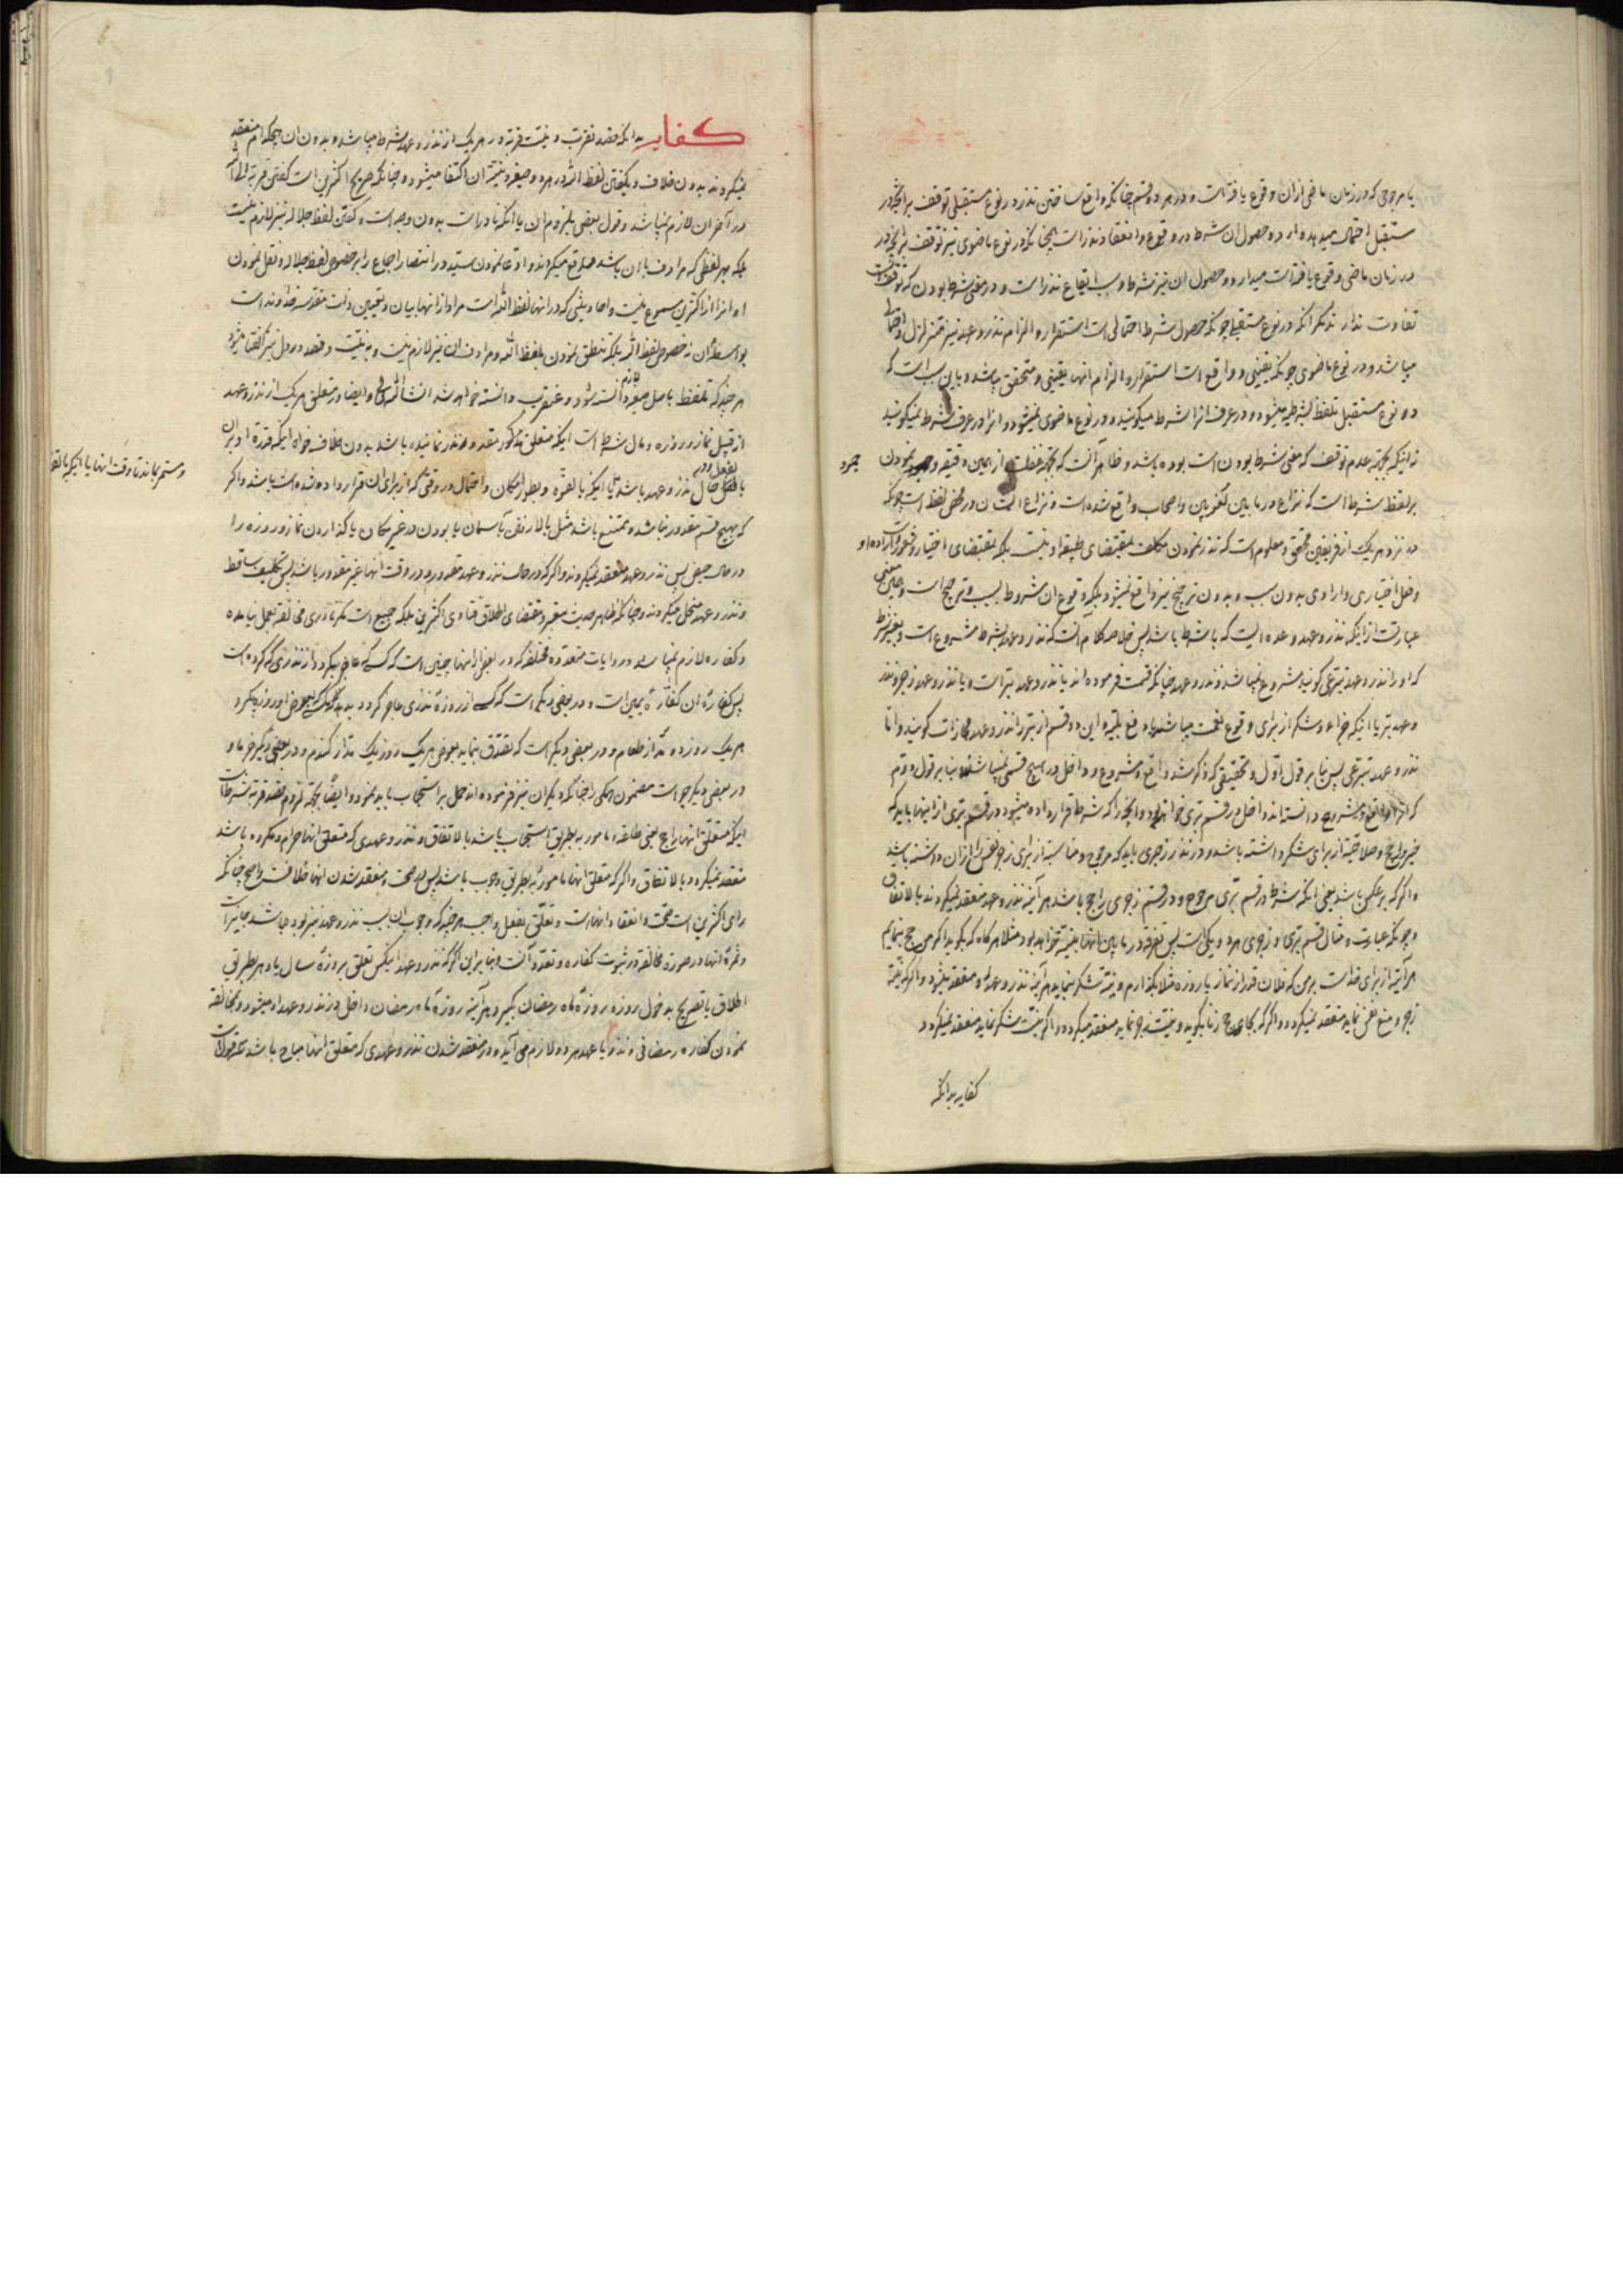 یا مرجوحی که در زمان ماضی از ان وقوع یافته است و در هر دو قسم چنانکه واقع ساختن نذر در نوع مستقبلی توقف بر انچه در
مستقبل احتمال میدهد دارد و حصول ان شرط در وقوع و انعقاد نذر است همچنانکه در نوع ماضوی نیز توقف بر انچه در
در زمان ماضی وقوع یافته است میدارد و حصول ان نیز شرط و سبب ایقاع نذر است و در معنی شرط بودن که توقفست
تفاوت ندارند مگر انکه در نوع مستقبلی چونکه حصول شرط احتمالی است استقرار و الزام نذر و عهد نیز متزلزل و احتمالی
میباشد و در نوع ماضوی چونکه یقینی و واقع است استقرار و الزام انها یقینی و متحقق میباشد و باین سبب است که
در نوع مستقبل تلفظ بشرطیه میشود و در عرف انرا شرط میگویند و در نوع ماضوی نمیشود و انرا در عرف شرط نمیگویند
نه اینکه بجهة عدم توقف که معنی شرط بودن است بوده باشد و ظاهر آنست که بجهة غفلت از همین دقیقه و جمود نمودن
جمود
بر لفظ شرط است که نزاع در ما بین لغویین و اصحاب واقع شده است و نزاع ایشان در محض لفظ است چونکه
در نزد هر یک از فریقین محقق و معلوم است که نذر نمودن مکلف بمقتضای طبیعة او نیست بلکه بمقتضای اختیار و شعور و اراده او
و فعل اختیاری و ارادی بدون سبب و بدون ترجیح نیز واقع نمیشود بلکه وقوع ان مشروط بسبب و ترجیح است و همین معنی
عبارت از اینکه نذر و عهد وعده ایست که با شرط باشد پس خلاصه کلام آنست که نذر و عهد بشرط مشروع است و بغیر شرط
که او را نذر و عهد تبرعی گویند مشروع نمیباشد و نذر و عهد چنانکه قسمت فرموده اند یا نذر و عهد تبر است و یا نذر و عهد زجر و نذر
و عهد تبر یا اینکه جزاء و شکر از برای وقوع نعمت میباشد یا دفع بلیه و این دو قسم از تبر را نذر و عهد مجازات گویند و اما
نذر و عهد تبرعی پس بنا بر قول اول و تحقیقی که ذکر شد واقع و مشروع و داخل در هیچ قسمی نمیباشد و بنا بر قول دویم
که انرا واقع و مشروع دانسته اند داخل در قسم تبری خواهد بود و انچه را که شرط قرار داده میشود در قسم تبری از اینها باید که
خیر و راجح و صلاحیة از برای شکر داشته باشد و در نذر زجری باید که مرجوح و مناسبة از برای زجر نفس از ان داشته باشد
و اگر که بر عکس باشد یعنی انکه شرط در قسم تبری مرجوح و در قسم زجری راجح باشد هر آینه نذر و عهد منعقد نمیگردند بالاتفاق
و چونکه عبارت و مثال قسم تبری و زجری هر دو یکی است پس تفرقه در ما بین انها بنیّة خواهد بود مثلا هر گاه که بگوید اگر من حج بنمایم
هر آینه از برای خداست بر من که فلان قدر از نماز یا روزه مثلا بگذارم و بنیّة شکر بنماید هر آینه نذر و عهد او منعقد میشود و اگر که بنیّة
زجر و منع نفس نماید منعقد نمیگردد و اگر که بجای حج زنا بگوید و بنیّت زجر نماید منعقد میگردد و اگر بنیّت شکر نماید منعقد نمیگردد
کفایه بدانکه
کفایه بدانکه قصد تقرب و نیّت قربة در هر یک از نذر و عهد شرط میباشد و بدون ان هیچکدام منعقد
نمیگردند بدون خلاف و بگفتن لفظ الله در هر دو صیغه و بنیّة ان اکتفا میشود و چنانکه صریح اکثرین است گفتن قربة الی الله
در آخر ان لازم نمیباشد و قول بعضی بلزوم ان یا انکه نادر است بدون وجه است و گفتن لفظ جلاله نیز لازم نیست
بلکه بهر لفظی که مرادف با ان باشد واقع میگردند و ادعا نمودن سیّد در انتصار اجماع را بر خصوص لفظ جلاله و نقل نمودن
او انرا از اکثرین مسموع نیست و احادیثی که در انها لفظ الله است مراد از انها بیان و تعیین ذات مقدسه خداوند است
بواسطهٔ ان نه خصوص لفظ الله بلکه تنطق نمودن بلفظ الله و مرادف ان نیز لازم نیست و به نیّت و قصد در دل نیز اکتفا میشود
هر چند که تلفظ باصل صیغه لازم دانسته شود و عنقریب دانسته خواهد شد انشاء الله تعالی و ایضا در متعلق هر یک از نذر و عهد
از قبیل نماز و روزه و مال شرط است اینکه متعلق مذکور مقدور نذر نماینده باشد بدون خلاف خواه اینکه قدرة او بر ان
بالفعل و در حال نذر و عهد باشد یا اینکه بالقوّة و بطور امکان و احتمال در وقتی که از برای ان قرار داده شده است باشد و اگر
و مستمر بماند تا وقت انها یا اینکه بالقو
که بهیچ قسم مقدور نباشد و ممتنع باشد مثل بالا رفتن بآسمان یا بودن در غیر مکان یا گذاردن نماز و روزه را
در حال حیض پس نذر و عهد منعقد نمیگردند و اگر که در حال نذر و عهد مقدور و در وقت انها غیر مقدور باشد پس تکلیف ساقط
و نذر و عهد منحل میگردند و چنانکه ظاهر حدیث معتبر و مقتضای اطلاق فتاوی اکثرین بلکه جمیع است مگر نادری مخالفة بعمل نیامده
و کفاره لازم نمیباشد و در روایات متعدده مختلفه که در بعضی از انها چنین است که کسی که عاجز بگردد از نذری که کرده است
پس کفارهٔ ان کفارهٔ یمین است و در بعضی دیگر است که کسی که از روزهٔ نذری عاجز گردد بدهد بعوض او روزه بگیرد
هر یک روزه دو مُدّ از طعام و در بعضی دیگر است که تصدق بنماید بعوض هر یک روز یک مدّ از گندم و در بعضی دیگر خرما و
در بعضی دیگر جو است مضمون همگی را چنانکه دیگران نیز فرموده اند حمل بر استحباب باید نمود و ایضاً بجهة لزوم قصد قربة شرط است
اینکه متعلق انها راجح یعنی طاعة و مامور به بطریق استحباب باشد بالاتفاق و نذر و عهدی که متعلق انها حرام و مکروه باشد
منعقد نمیگردد بالاتفاق و اگر که متعلق انها مامور به بطریق وجوب باشد پس در صحت و منعقد شدن انها خلافست و اصح چنانکه
رای اکثرین است صحت و انعقاد انهاست و تعلق بفعل واجب هر چند که وجوب ان بسبب نذر و عهد نیز بوده باشد جایز است
و ثمرهٔ انها در صورة مخالفة در ثبوت کفاره و تعدد آنست و بنا بر این اگر که نذر و عهد احدیکس تعلق بروزهٔ سال یا دهر بطریق
اطلاق یا تصریح بدخول روزه روزهٔ ماه رمضان بگیرد هر آینه روزهٔ ماه رمضان داخل در نذر و عهد او میشود و بمخالفة
نمودن کفاره رمضانی و نذر یا عهد هر دو لازم می آید و در منعقد شدن نذر و عهدی که متعلق انها مباح باشد سه قول است